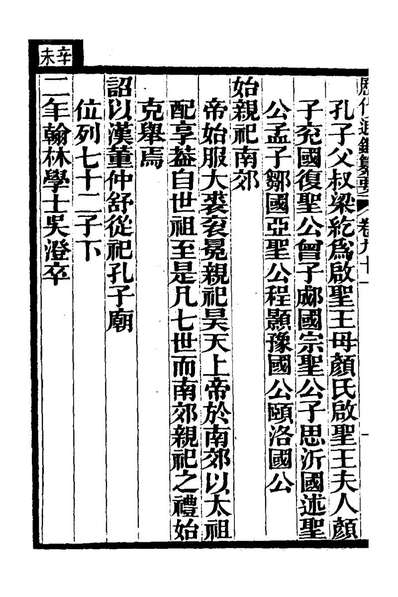 歷代通鑑纂要 卷九十一
孔子父叔梁紇爲啟聖王母顏氏啟聖王夫人顏
子兖國復聖公曾子郕國宗聖公子思沂國述聖
公孟子鄒國亞聖公程顥豫國公頤洛國公
始親祀南郊
帝始服大裘衮冕親祀昊天上帝於南郊以太祖
配享葢自世祖至是凡七世而南郊親祀之禮始
克舉焉
詔以漢董仲舒從祀孔子廟
位列七十二子下
二年翰林學士吳澄卒
辛未